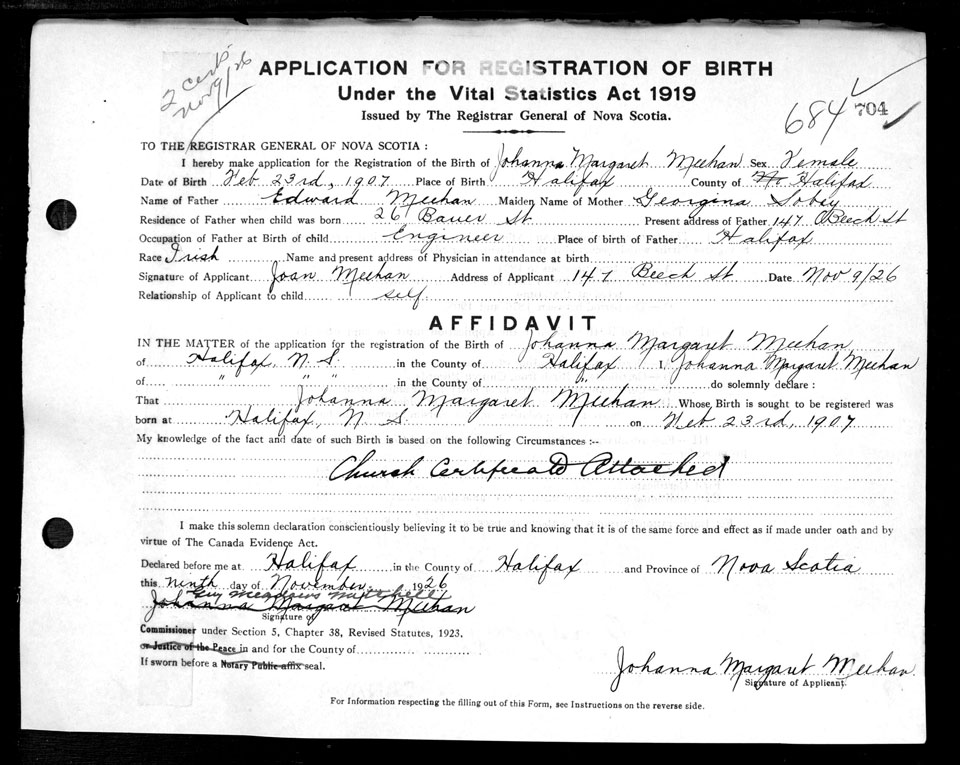 2 certs
Nov 9/26
APPLICATION FOR REGISTRATION OF BIRTH
Under the Vital Statistics Act 1919
Issued by The Registrar General of Nova Scotia.
684 704
TO THE REGISTRAR GENERAL OF NOVA SCOTIA :
I hereby make application for the Registration of the Birth of Johanna Margaret Meehan Sex Female
Date of Birth Feb 23rd, 1907 Place of Birth Halifax County of Halifax
Name of Father Edward Meehan Maiden Name of Mother Georgina Sobey
Residence of Father when child was born 26 Bauer St Present address of Father 147 Beech St
Occupation of Father at Birth of child Engineer Place of birth of Father Halifax
Race Irish Name and present address of Physician in attendance at birth
Signature of Applicant Joan Meehan Address of Applicant 147 Beech St Date Nov 9/26
Relationship of Applicant to child self
AFFIDAVIT
IN THE MATTER of the application for the registration of the Birth of Johanna Margaret Meehan
of Halifax, N. S. in the County of Halifax I, Johanna Margaret Meehan
of " " " in the County of " do solemnly declare :
That Johanna Margaret Meehan Whose Birth is sought to be registered was
born at Halifax, N. S. on Feb 23rd, 1907
My knowledge of the fact and date of such Birth is based on the following Circumstances :--
Church Certificate Attached
I make this solemn declaration conscientiously believing it to be true and knowing that it is of the same force and effect as if made under oath and by
virtue of The Canada Evidence Act.
Declared before me at Halifax in the County of Halifax and Province of Nova Scotia
this ninth day of November 1926
Johanna Margaret Meehan
Signature of
Commissioner under Section 5, Chapter 38, Revised Statutes, 1923,
or Justice of the Peace in and for the County of
If sworn before a Notary Public affix seal.
Johanna Margaret Meehan
Signature of Applicant.
For Information respecting the filling out of this Form, see Instructions on the reverse side.